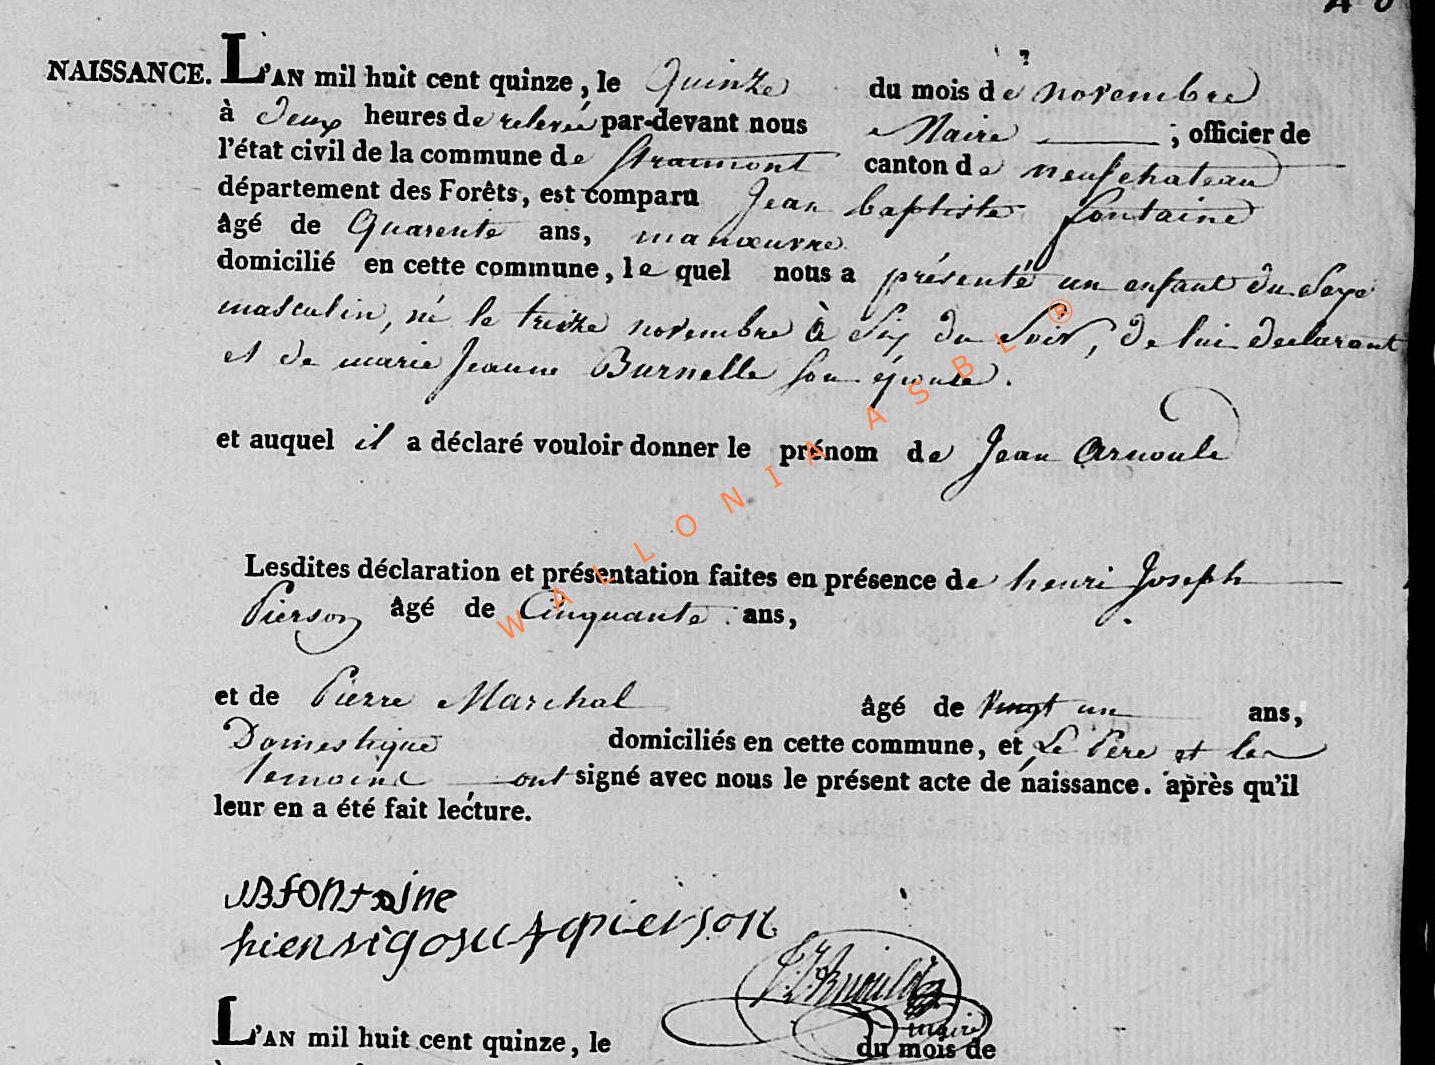 NAISSANCE. L'AN mil huit cent quinze, le Quinze du mois de novembre
à deux heures de relevée par-devant nous Maire ; officier de
l'état civil de la commune de Straimont canton de neufchateau
département des Forêts, est comparu Jean baptiste fontaine
âgé de Quarente ans, manœuvre
domicilié en cette commune, le quel nous a présenté un enfant du Sexe
masculin, né le treize novembre à Six du Soir, de lui declarant
et de marie Jeanne Burnelle son épouse.
et auquel il a déclaré vouloir donner le prénom de Jean Arnould
Lesdites déclaration et présentation faites en présence de henri Joseph
Pierson âgé de Cinquante ans,
et de Pierre Marchal âgé de Vingt un ans,
Domestique domiciliés en cette commune, et Le Père et le
temoine ont signé avec nous le présent acte de naissance. après qu'il
leur en a été fait lecture.
JBfontaine
hienrigosefpierson
maire
L'AN mil huit cent quinze, le du mois de
WALLONIA ASBL ®